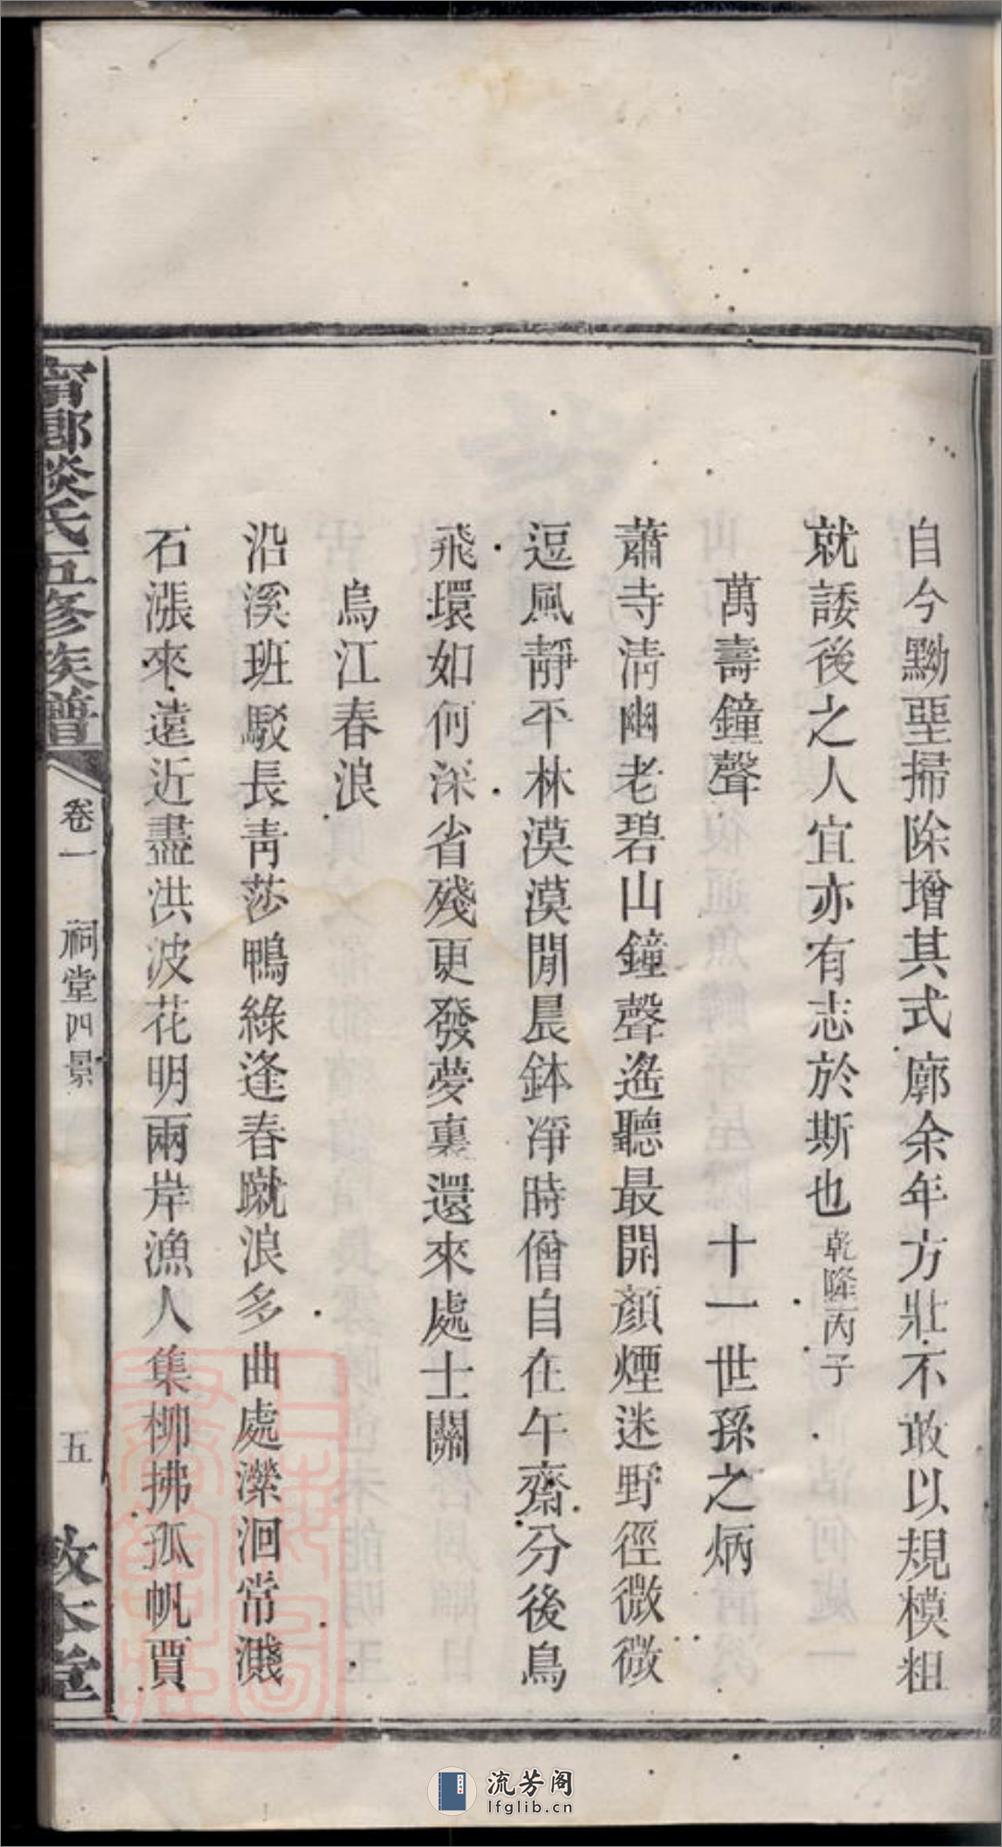 自今黝堊掃除增其式廓余年方壯不敢以規模粗
就諉後之人宜亦有志於斯也乾隆丙子
萬壽鐘聲 十一世孫之炳
蕭寺清幽老碧山鐘聲遙聽最開顏煙迷野徑微微
逗風靜平林漠漠閒晨鉢凈時僧自在午齋分後鳥
飛環如何深省殘更發夢裏還來處士關
烏江春浪
沿溪班駁長青莎鴨綠逢春蹴浪多曲處瀠洄常濺
石漲來遠近盡洪波花明兩岸漁人集柳拂孤帆賈
甯鄉談氏五修族譜 卷一 祠堂四景 五 敦本堂
流芳阁
lfglib.cn